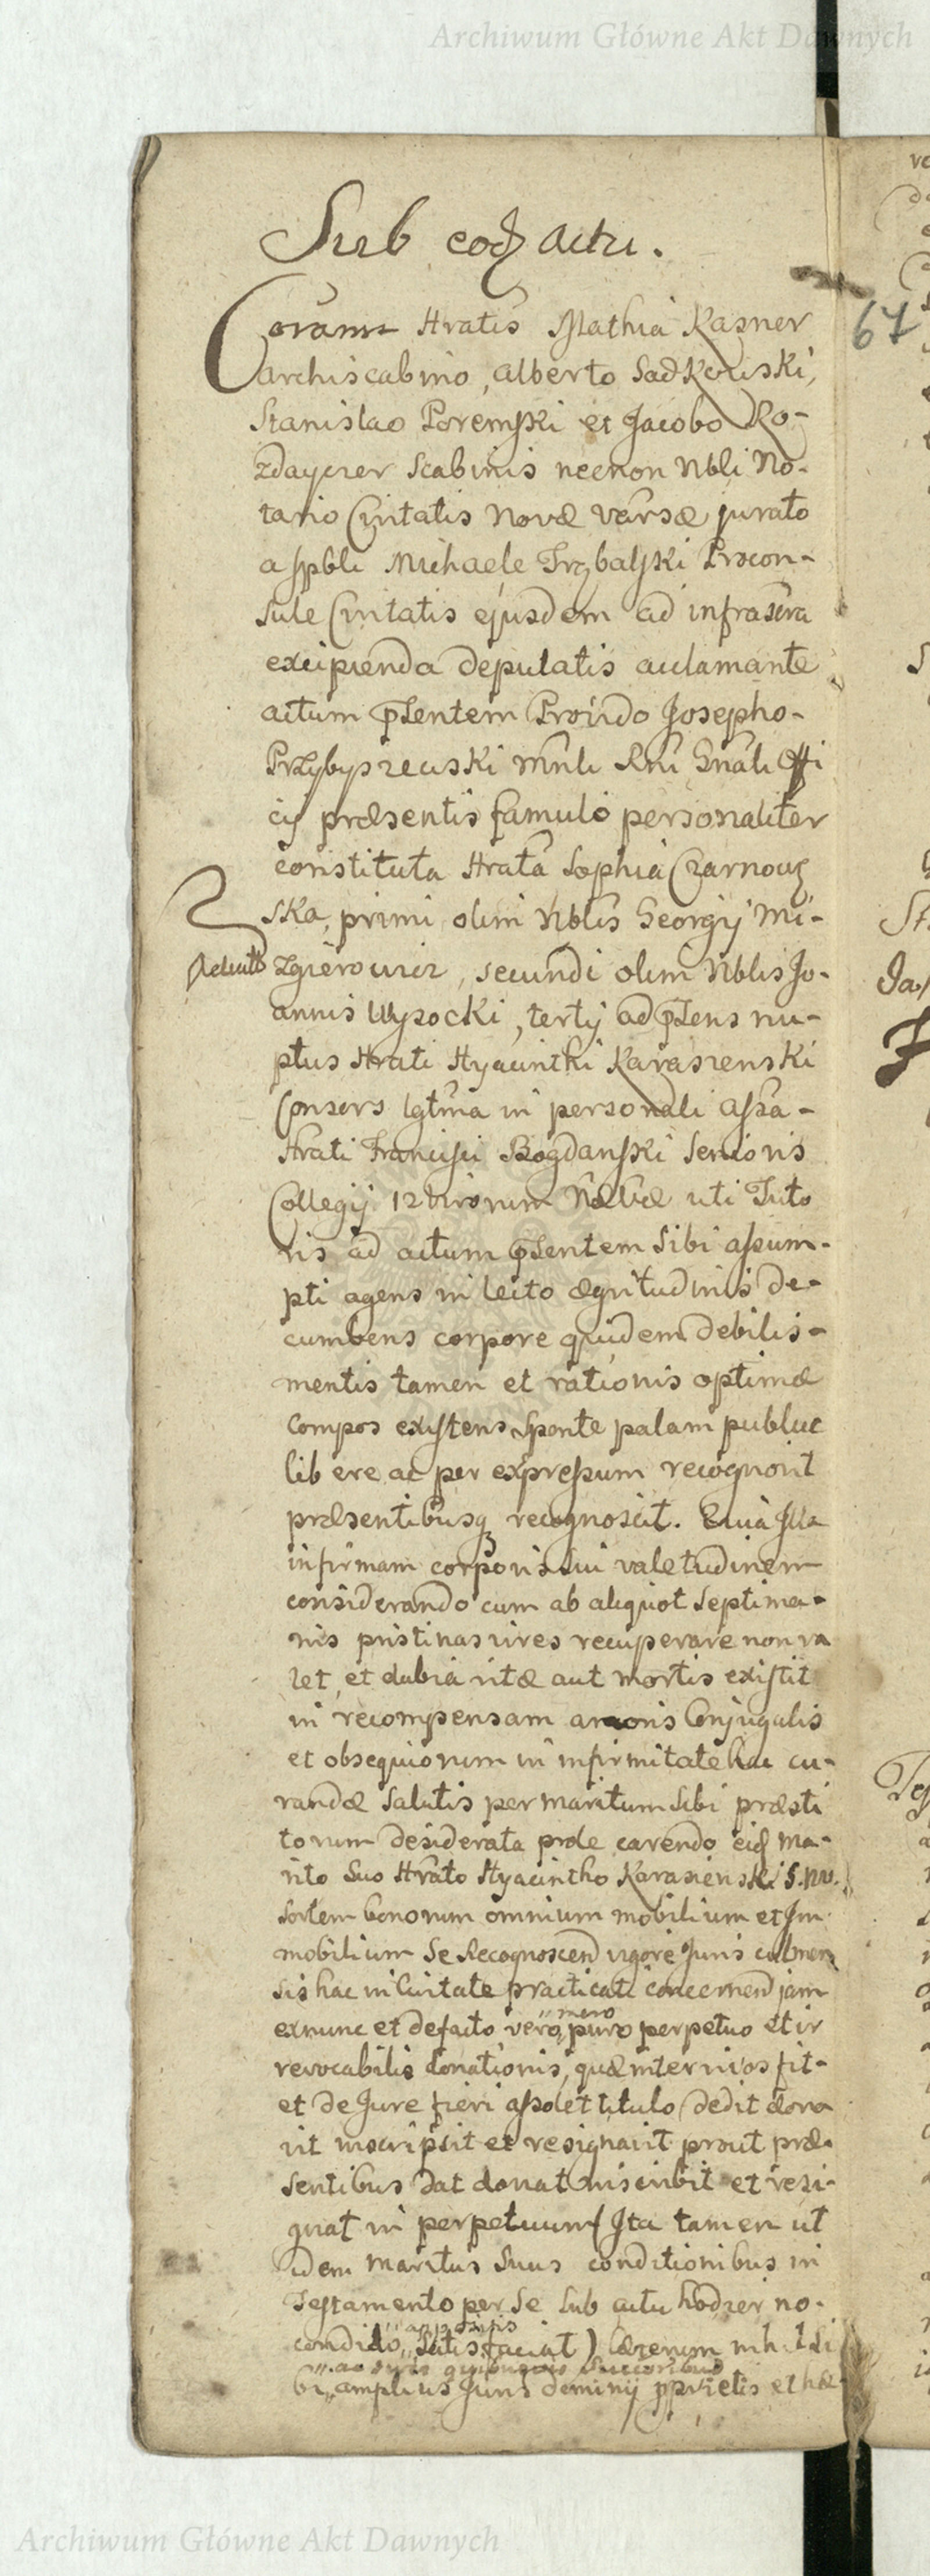 Archiwum Główne Akt Dawnych
Sub eod actu.
67
Coram Hratis Mathia Kasner
archiscabino, Alberto Sadkowski,
Stanislao Porempski et Jacobo Ro-
zdayczer Scabinis necnon Nbli No-
tario Civitatis Novæ Varsæ jurato
a spbli Michaele Procon-
sule Civitatis ejusdem ad infrascra
excipienda deputatis aclamante
actum pñsentem Provido Josepho
Przybyszewski mnli Gnali Offi
cij præsentis famulo personaliter
constituta Hrata Sophia Czarnow
ska, primi olim Nblis Georgij Mi-
zgierowicz, secundi olim Nblis Jo-
annis Wysocki, tertij ad pñsens nu-
ptus Hrati Hyacinthi Karasienski
Consors lgtma in personali assa-
Hrati Francisci Bogdanski Senioris
Collegij 12 virorum uti Tuto
ris ad actum pñsentem sibi assum-
pti agens in lecto ægritudinis de-
cumbens corpore quidem debilis-
mentis tamen et rationis optimæ
compos existens sponte palam public
libere ac per expressum recognovit
præsentibusq recognoscit. Quia Illa
infirmam corporis sui valetudinem
considerando cum ab aliquot septima-
nis pristinas vires recuperare non va
let, et dubia vitæ aut mortis existit
in recompensam amoris Conjugalis
et obsequiorum in infirmitate hac cu-
randæ salutis per maritum sibi præsti
torum desiderata prole carendo eid ma-
rito suo Hrato Hyacintho Karasienski
sortem bonorum omnium mobilium et Im
mobilium se Recognoscen vigore Juris culmen
sis hac in Civitate practicati concernen jam
exnunc et defacto vero, mero puro perpetuo et ir
revocabilis donationis, quæ inter vivos fit-
et de Jure fieri assolet titulo dedit dona
vit inscripsit et resignavit prout præ-
sentibus dat donat inscribit et resi-
gnat in perpetuum (Ita tamen ut
idem maritus suus conditionibus in
Testamento per se sub actu hodier no-
appositis
condito, satisfaciat) Cæterum nihil si
ac suis quibusvis Successoribus
bi, amplius Juris dominij pprietis et hæ-
Archiwum Główne Akt Dawnych